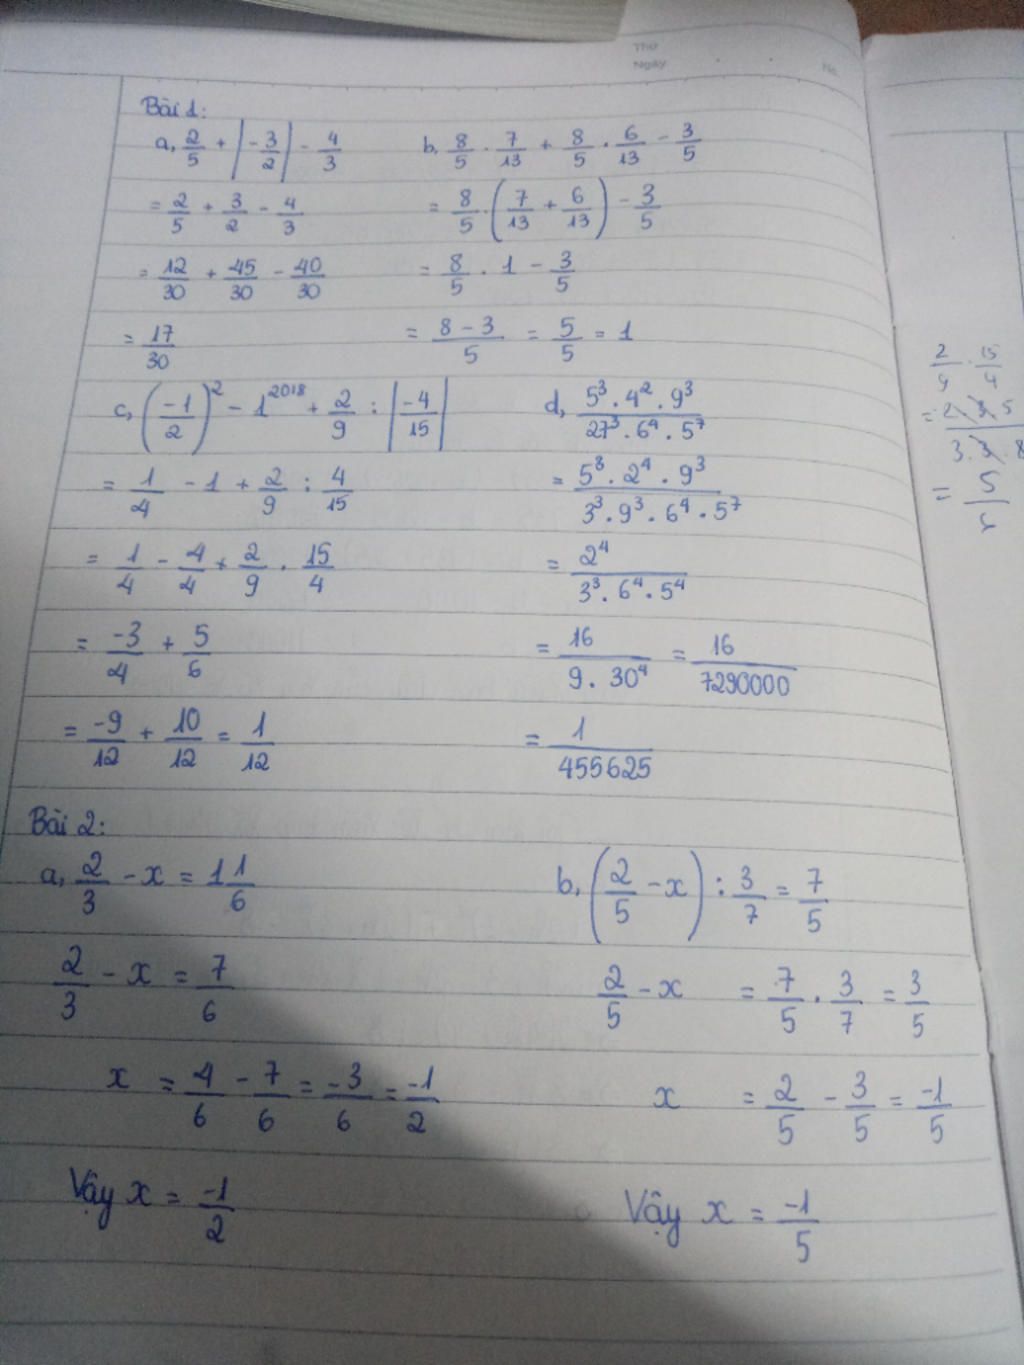 Thứ
Ngày
No.
Bài 1:
a, 2/5 + |-3/2| - 4/3
= 2/5 + 3/2 - 4/3
= 12/30 + 45/30 - 40/30
= 17/30
b, 8/5 . 7/13 + 8/5 . 6/13 - 3/5
= 8/5 . (7/13 + 6/13) - 3/5
= 8/5 . 1 - 3/5
= (8 - 3)/5 = 5/5 = 1
c, (-1/2)² - 1²⁰¹⁸ + 2/9 : |-4/15|
= 1/4 - 1 + 2/9 : 4/15
= 1/4 - 4/4 + 2/9 . 15/4
= -3/4 + 5/6
= -9/12 + 10/12 = 1/12
d, (5³ . 4² . 9³)/(27³ . 6⁴ . 5⁷)
= (5³ . 2⁴ . 9³)/(3³ . 9³ . 6⁴ . 5⁷)
= 2⁴/(3³ . 6⁴ . 5⁴)
= 16/(9 . 30⁴) = 16/7290000
= 1/455625
Bài 2:
a, 2/3 - x = 1 1/6
2/3 - x = 7/6
x = 4/6 - 7/6 = -3/6 = -1/2
Vậy x = -1/2
b, (2/5 - x) : 3/7 = 7/5
2/5 - x = 7/5 . 3/7 = 3/5
x = 2/5 - 3/5 = -1/5
Vậy x = -1/5
2/9 . 15/4